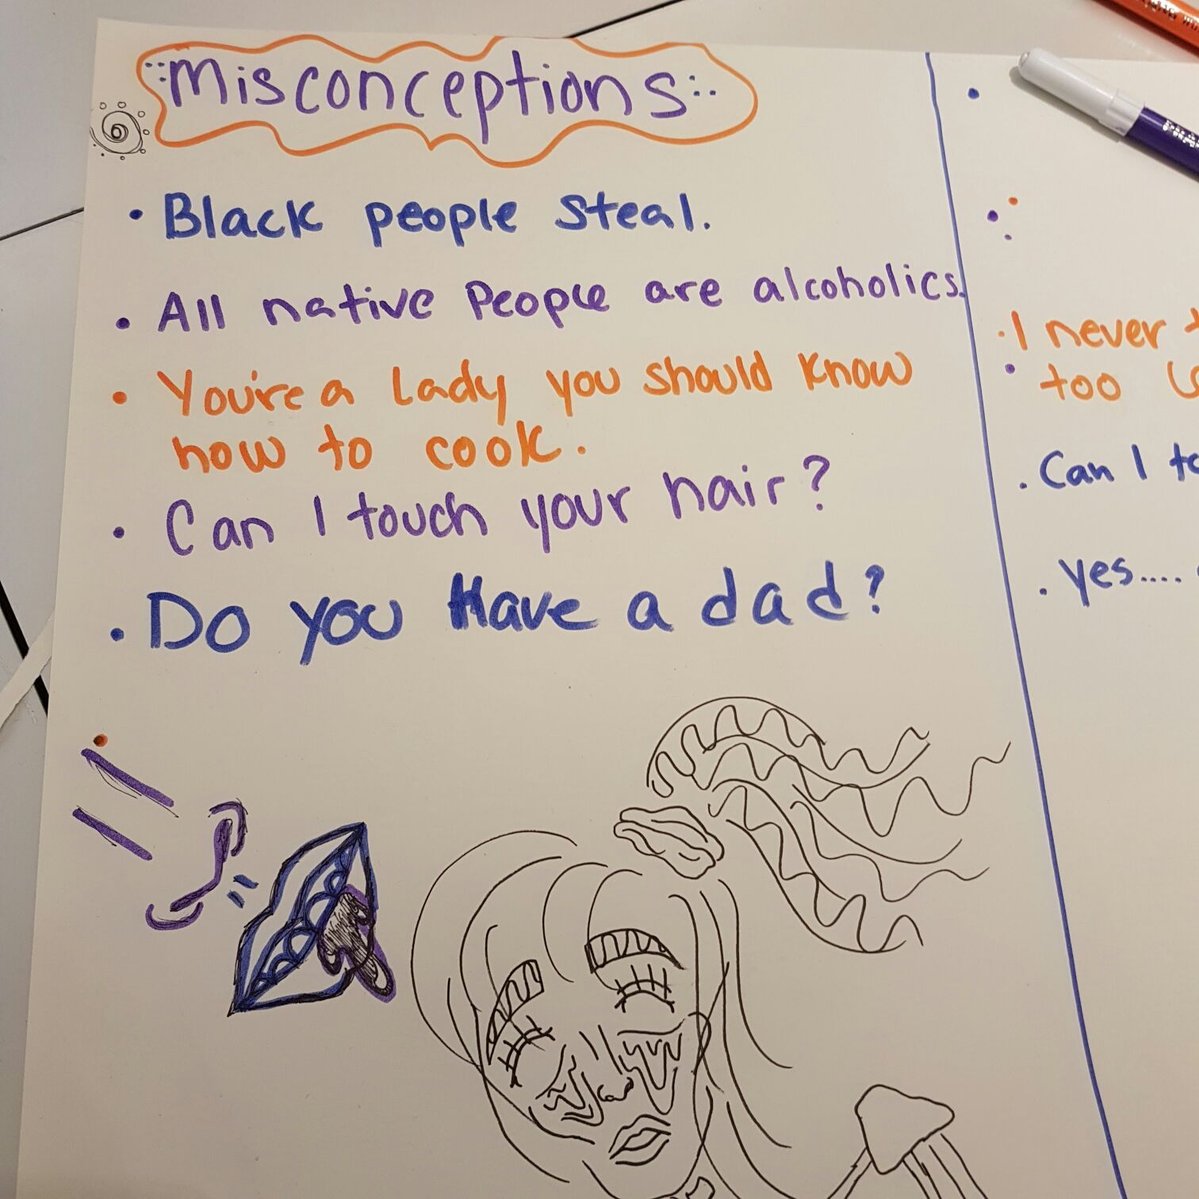 Misconceptions
• Black people steal.
• All native People are alcoholics.
• You're a Lady you should know
how to cook.
• Can I touch your hair?
• Do you Have a dad?
• I never
too
• Can I
• yes....